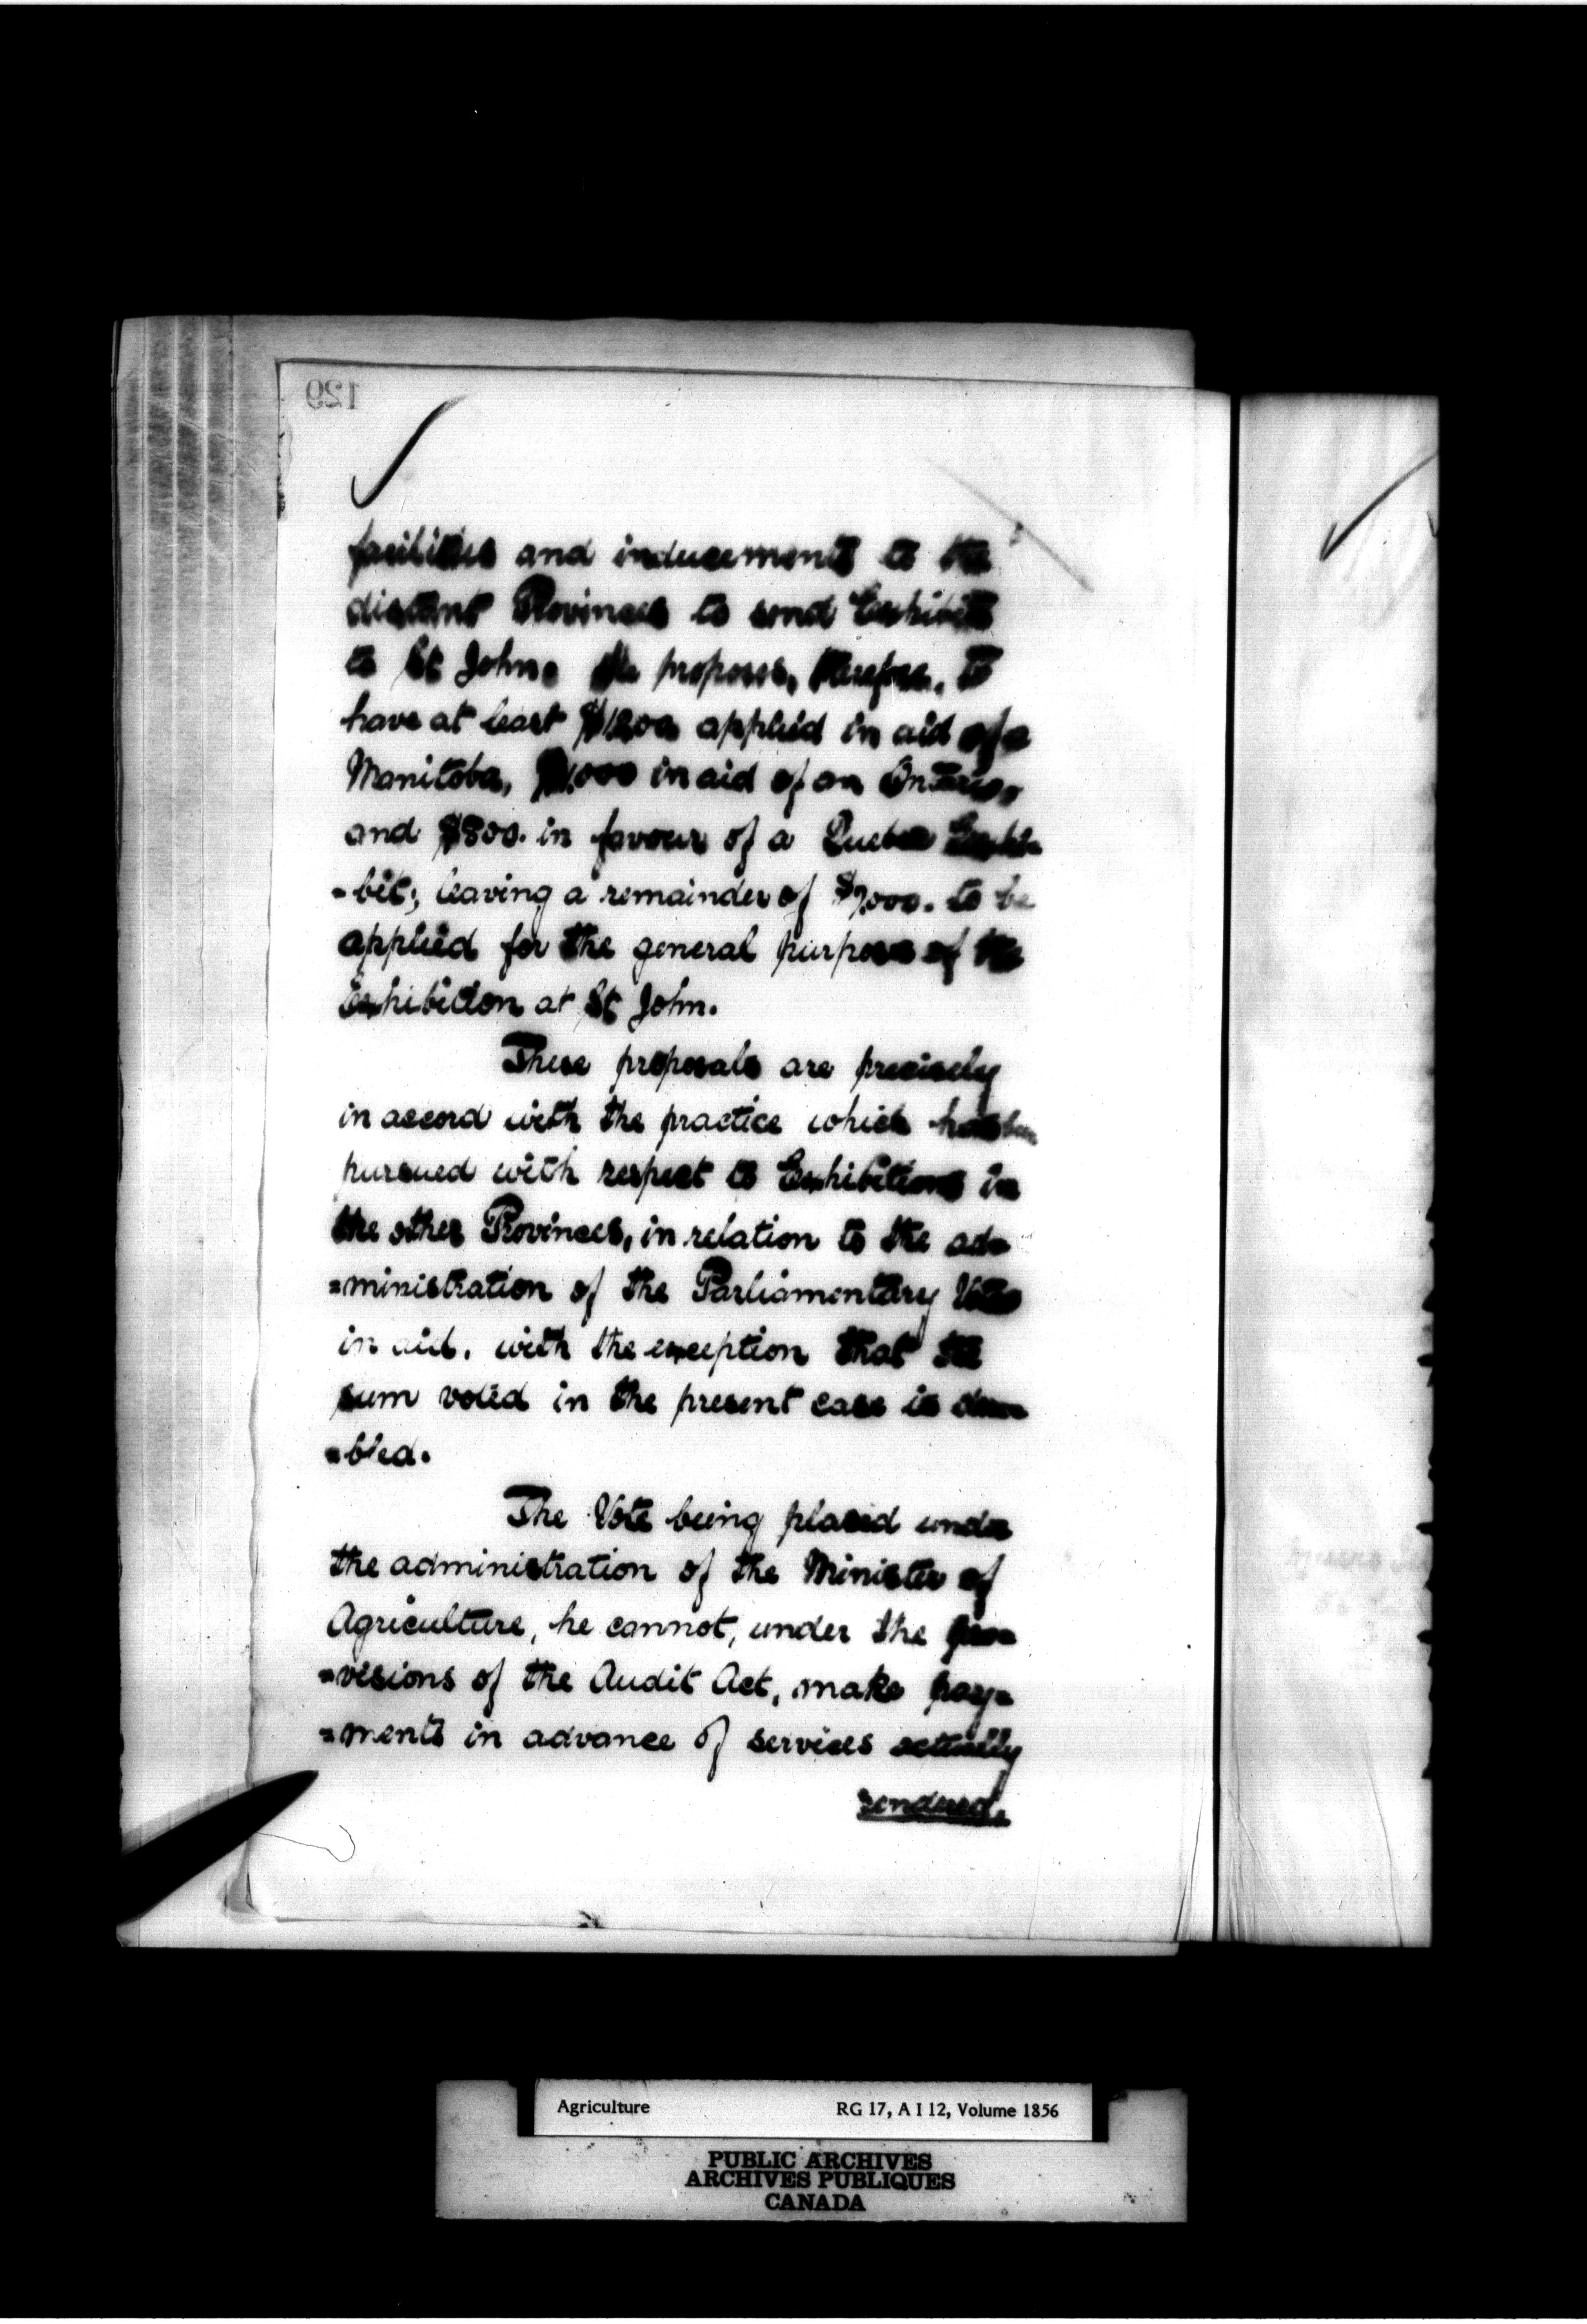 129
facilities and inducements to the
distant Provinces to send Exhibits
to St John. He proposes, therefore, to
have at least $1200 applied in aid of a
Manitoba, $1,000 in aid of an Ontario,
and $800. in favour of a Quebec Exhi-
=bit; leaving a remainder of $7,000. to be
applied for the general purposes of the
Exhibition at St John.
These proposals are precisely
in accord with the practice which has been
pursued with respect to Exhibitions in
the other Provinces, in relation to the ad=
=ministration of the Parliamentary Vote
in aid, with the exception that the
sum voted in the present case is dou=
=bled.
The Vote being placed under
the administration of the Minister of
Agriculture, he cannot, under the pro=
=visions of the Audit Act, make pay=
=ments in advance of services actually
rendered.
Agriculture RG 17, A I 12, Volume 1856
PUBLIC ARCHIVES
ARCHIVES PUBLIQUES
CANADA